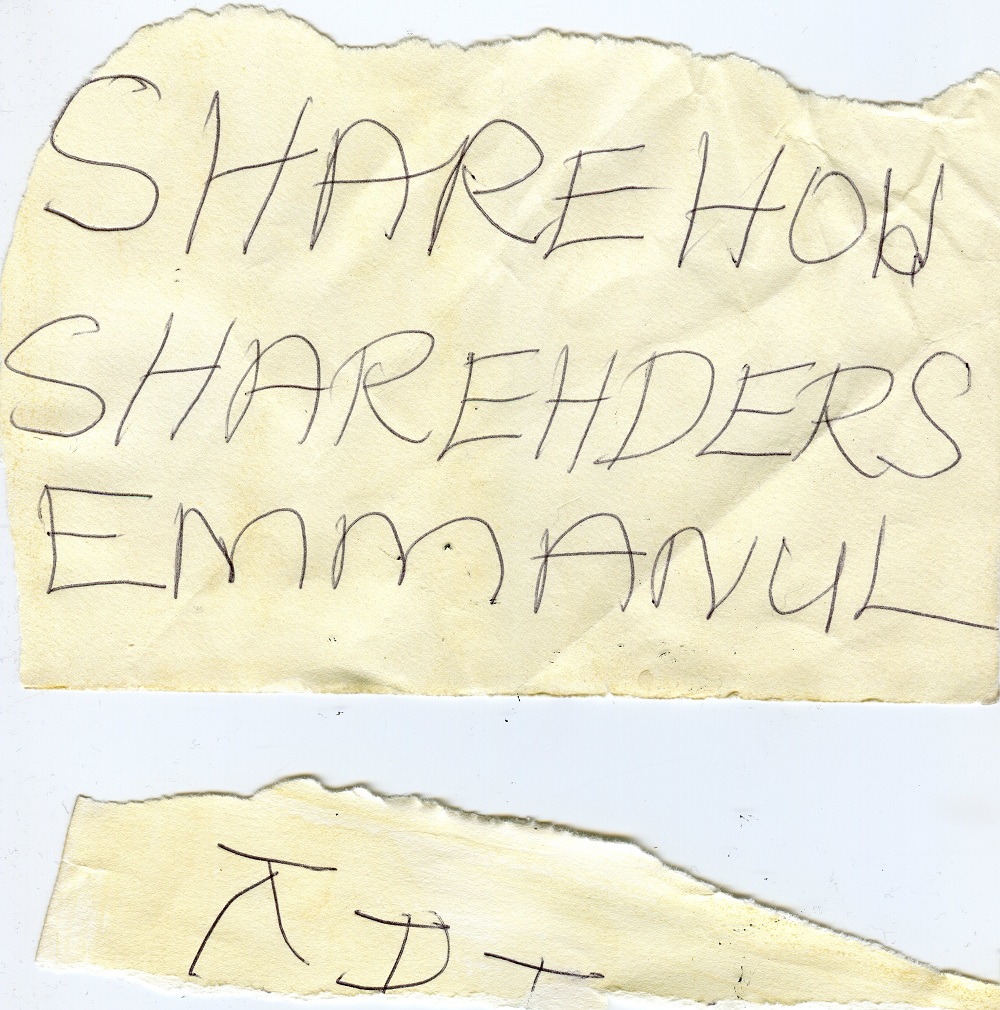 SHAREHOW
SHAREHDERS
EMMANUL